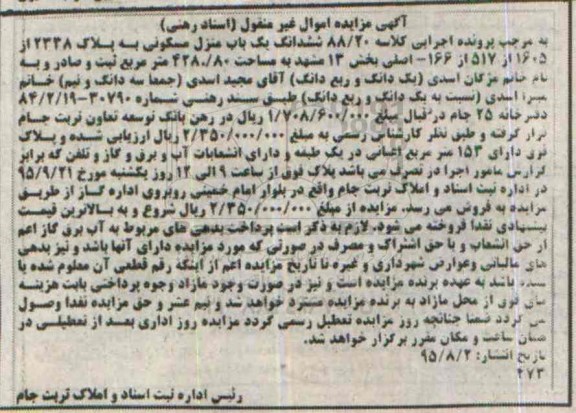 آگهی مزایده اموال غیر منقول (اسناد رهنی)
به موجب پرونده اجرایی کلاسه ۸۸/۲۰ ششدانگ یک باب منزل مسکونی به پلاک ۲۳۳۸ از
۱۶۰۵ از ۵۱۷ از ۱۶۶- اصلی بخش ۱۳ مشهد به مساحت ۴۲۸.۸۰ متر مربع ثبت و صادر و به
نام خانم مژگان اسدی (یک دانگ و ربع دانگ) آقای مجید اسدی (جمعا سه دانگ و نیم) خانم
میترا اسدی (نسبت به یک دانگ و ربع دانگ) طبق سند رهنی شماره ۳۰۷۹۰-۸۴/۲/۱۹
دفترخانه ۲۵ جام در قبال مبلغ ۱/۷۰۸/۶۰۰/۰۰۰ ریال در رهن بانک توسعه تعاون تربت جام
قرار گرفته و طبق نظر کارشناس رسمی به مبلغ ۲/۳۵۰/۰۰۰/۰۰۰ ریال ارزیابی شده و پلاک
فوق دارای ۱۵۳ متر مربع اعیانی در یک طبقه و دارای انشعابات آب و برق و گاز و تلفن که برابر
گزارش مامور اجرا در تصرف می باشد پلاک فوق از ساعت ۹ الی ۱۲ روز یکشنبه مورخ ۹۵/۹/۲۱
در اداره ثبت اسناد و املاک تربت جام واقع در بلوار امام خمینی روبروی اداره گاز از طریق
مزایده به فروش می رسد. مزایده از مبلغ ۲/۳۵۰/۰۰۰/۰۰۰ ریال شروع و به بالاترین قیمت
پیشنهادی نقدا فروخته می شود. لازم به ذکر است پرداخت بدهی های مربوط به آب برق گاز اعم
از حق انشعاب و یا حق اشتراک و مصرف در صورتی که مورد مزایده دارای آنها باشد و نیز بدهی
های مالیاتی وعوارض شهرداری و غیره تا تاریخ مزایده اعم از اینکه رقم قطعی آن معلوم شده یا
نشده باشد به عهده برنده مزایده است و نیز در صورت وجود مازاد وجوه پرداختی بابت هزینه
های فوق از محل مازاد به برنده مزایده مسترد خواهد شد و نیم عشر و حق مزایده نقدا وصول
می گردد ضمنا چنانچه روز مزایده تعطیل رسمی گردد مزایده روز اداری بعد از تعطیلی در
همان ساعت و مکان مقرر برگزار خواهد شد.
تاریخ انتشار: ۹۵/۸/۲
۴۷۳
رئیس اداره ثبت اسناد و املاک تربت جام